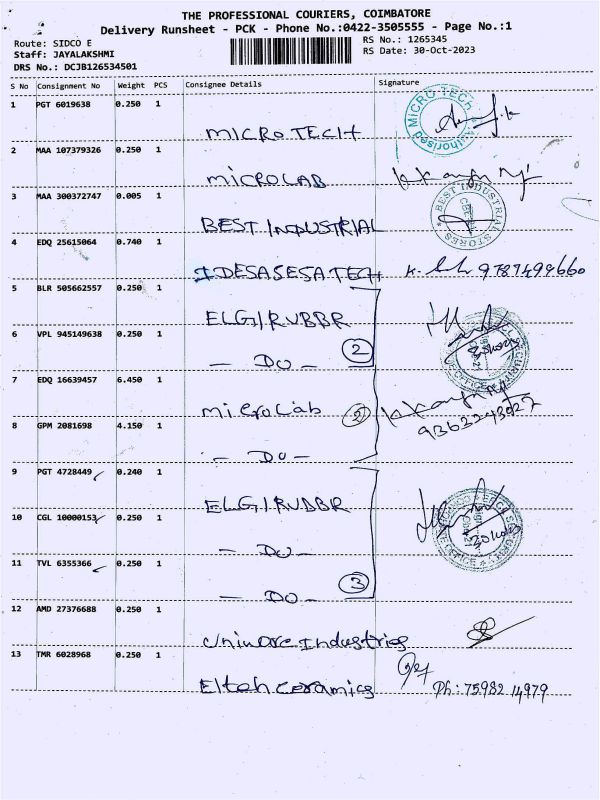 THE PROFESSIONAL COURIERS, COIMBATORE
Delivery Runsheet - PCK - Phone No.:0422-3505555 - Page No.:1
Route: SIDCO E RS No.: 1265345
Staff: JAYALAKSHMI RS Date: 30-Oct-2023
DRS No.: DCJB126534501
S No Consignment No Weight PCS Consignee Details Signature
1 PGT 6019638 0.250 1
MICRO TECH
MICRO TECH Authorised
2 MAA 107379326 0.250 1
MICROLAB
3 MAA 300372747 0.005 1
BEST INDUSTRIAL
BEST INDUSTRIAL STORES
4 EDQ 25615064 0.740 1
IDESASESATECH 9787499660
5 BLR 505662557 0.250 1
ELGI RUBBR
6 VPL 945149638 0.250 1
- DO - 2
7 EDQ 16639457 6.450 1
MicroLab 2
8 GPM 2081698 4.150 1
- DO -
9 PGT 4728449 0.240 1
ELGI RUBBR
10 CGL 10000153 0.250 1
- DO -
11 TVL 6355366 0.250 1
- DO - 3
12 AMD 27376688 0.250 1
Uniware Industries
13 TMR 6028968 0.250 1
Elteh ceramics Ph: 75982 14979